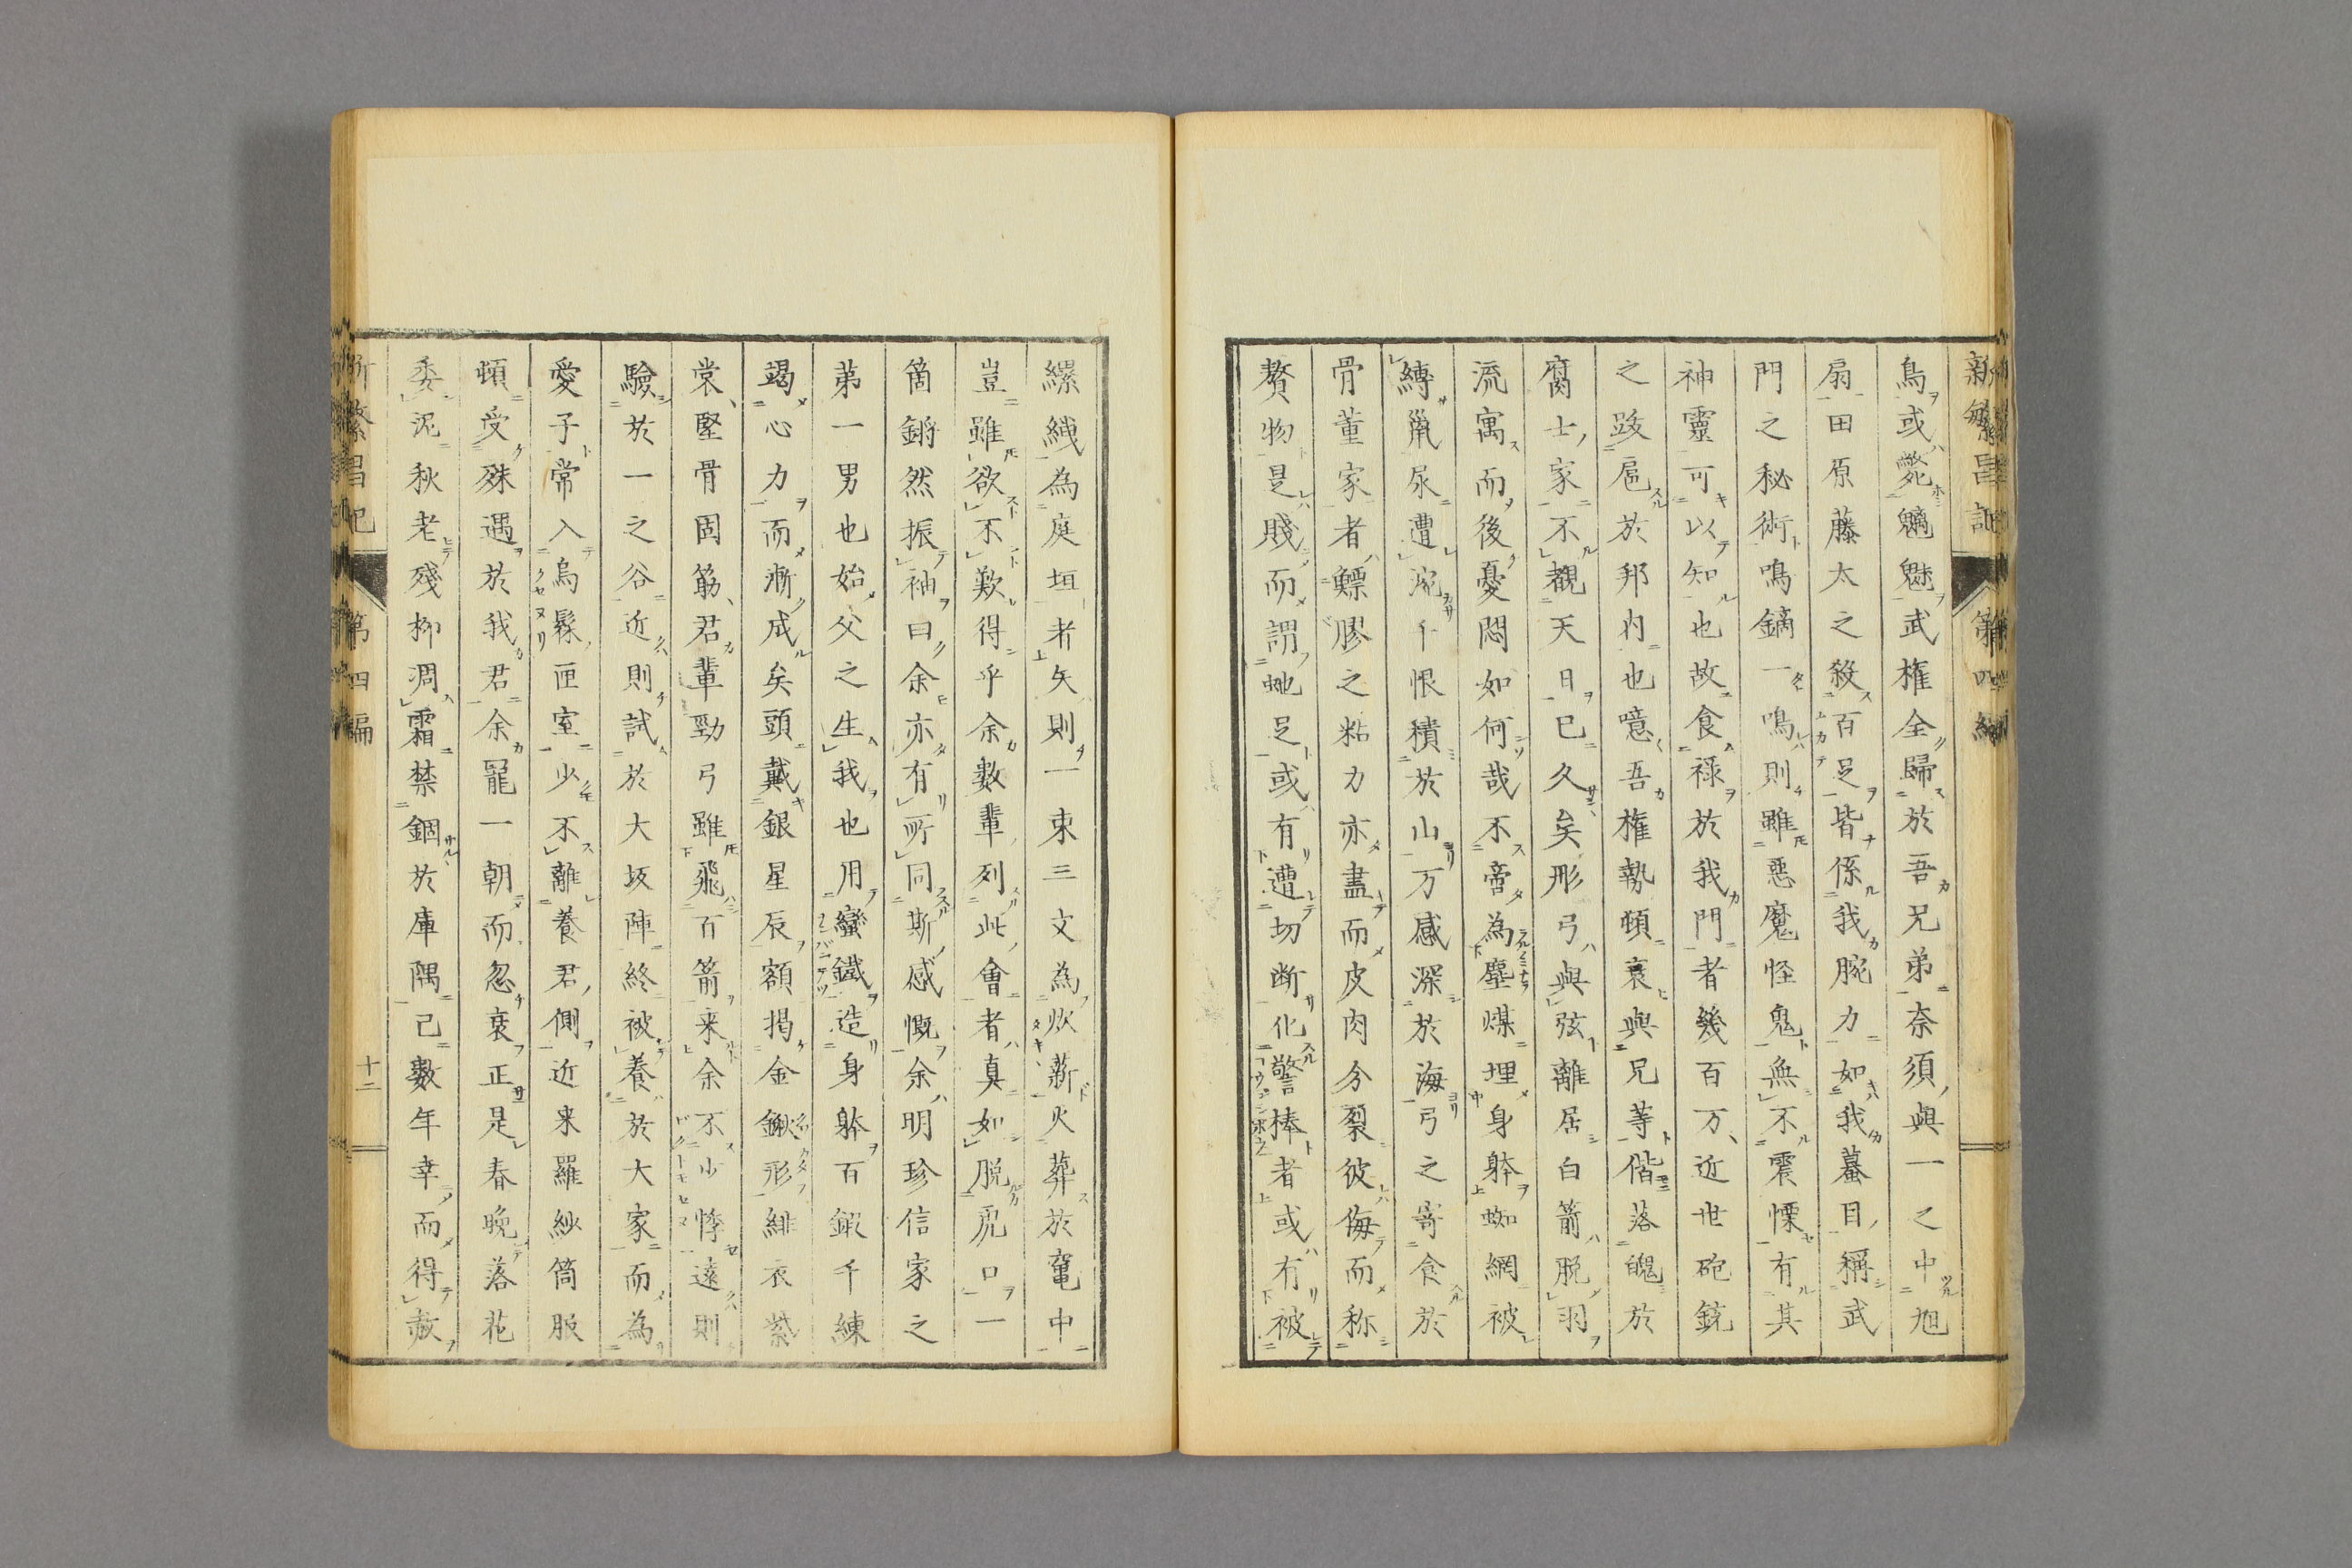 新繁昌記 第四編
鳥或斃魑魅武権全歸於吾兄弟奈須與一之中旭
扇田原藤太之殺百足皆係我腕力如我蟇目稱武
門之秘術鳴鏑一鳴則雖惡魔怪鬼無不震慄有其
神靈可以知也故食祿於我門者幾百万近世砲銃
之跋扈於邦内也噫吾權勢頓衰與兄等偕落魄於
腐士家不覩天日已久矣形弓與弦離居白箭脱羽
流寓而後憂悶如何哉不啻為塵煤埋身躰蜘網被
縛鼠尿遭涴千恨積於山万感深於海弓之寄食於
骨董家者鰾膠之粘力亦盡而皮肉分裂彼侮而称
贅物是賤而謂虵足或有遭切断化警棒者或有被
縲絏為庭垣者矢則一束三文為炊薪火葬於竃中
豈雖欲不歎得乎余數輩列此會者真如脱虎口一
箇鏘然振袖曰余亦有所同斯感慨余明珍信家之
第一男也始父之生我也用蠻鐵造身躰百鍜千練
竭心力而漸成矣頭戴銀星辰額掲金鍬形緋衣紫
裳堅骨固筋君輩勁弓雖飛百箭来余不少悸遠則
驗於一之谷近則試於大坂陣終被養於大家而為
愛子常入烏髹匣室少不離養君側近来羅紗筒服
頓受殊遇於我君余寵一朝而忽衰正是春晩落花
委泥秋老殘柳凋霜禁錮於庫隅已數年幸而得赦
新繁昌記 第四編 十二